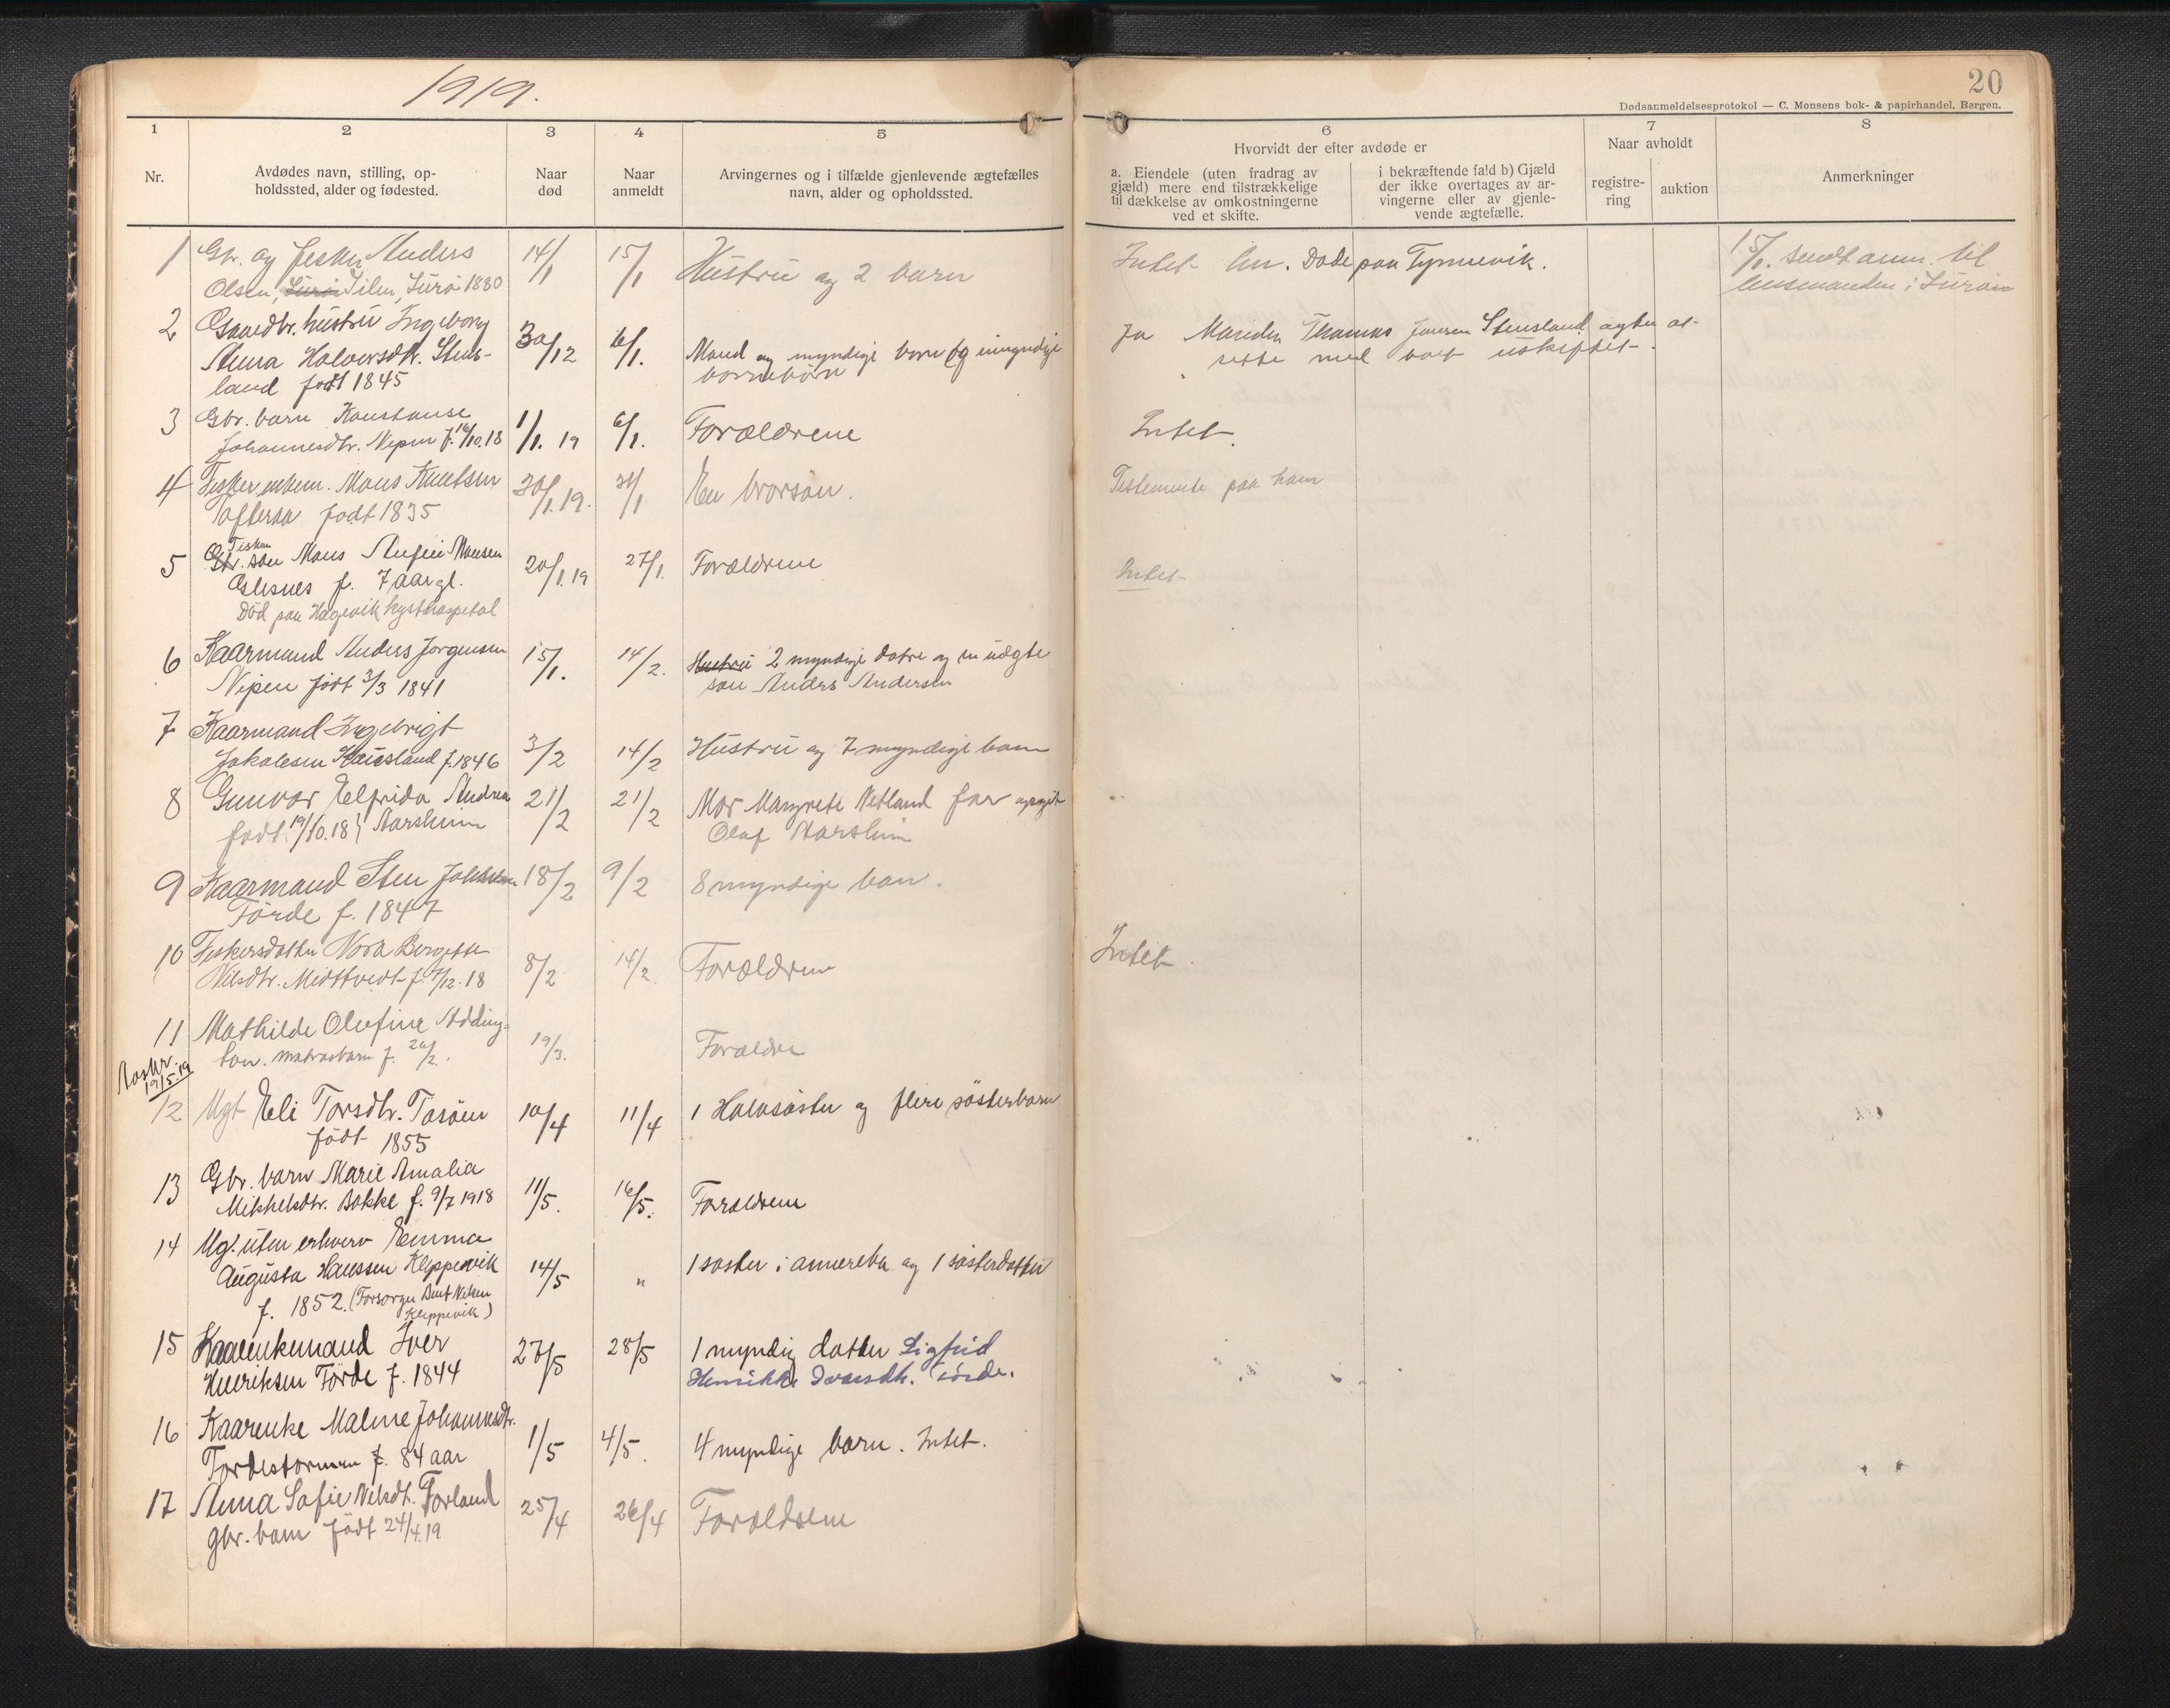 1919.
20
Dødsanmeldelsesprotokol — C. Monsens bok- & papirhandel, Bergen.
1
2
3
4
5
6
7
8
Nr.
Avdødes navn, stilling, op-
holdssted, alder og fødested.
Naar
død
Naar
anmeldt
Arvingernes og i tilfælde gjenlevende ægtefælles
navn, alder og opholdssted.
Hvorvidt der efter avdøde er
a. Eiendele (uten fradrag av
gjæld) mere end tilstrækkelige
til dækkelse av omkostningerne
ved et skifte.
i bekræftende fald b) Gjæld
der ikke overtages av ar-
vingerne eller av gjenle-
vende ægtefælle.
Naar avholdt
registre-
ring
auktion
Anmerkninger
1 Gbr. og fisker Anders
Olsen, 1880
14/1
15/1
Hustru og 2 barn
Intet. Døde paa Tysnevik.
15/1. sendt anm. til
lensmanden i
2 Gaardbr. hustru Ingeborg
Anna Halvorsdtr. Stens-
land født 1845
30/12
6/1.
Mand og myndige barn og umyndige
barnebörn
Ja Manden Thomas Jansen Stensland agter at
sitte med boet uskiftet.
3 Gbr. barn Konstanse
Johannesdtr. Nepen f. 16/10.18
1/1. 19
6/1.
Forældrene
Intet.
4 Fisker enkem. Mons Knutsen
Toftesø født 1835
30/1.19.
31/1
En brorsøn.
Testemente paa ham
5 Fisker
Gbr. søn Mons Anfin Monsen
Glesnes f. 7 aar gl.
Død paa Hagevik kysthospital
20/1.19
27/1.
Forældrene
Intet
6 Kaarmand Anders Jorgensen
Nipen født 3/3 1841
15/1.
14/2.
Hustru 2 myndige døtre og en
søn Anders Andersen
7 Kaarmand Ingebrigt
Jakobsen Haugsland f. 1846
3/2
14/2
Hustru og 7 myndige barn
8 Gunvor Elfrida Andrea
født 19/10.18 Aarsheim
21/2
21/2
Mor Margrete Netland far opgit
Olaf Aarsheim
9 Kaarmand Sten Johannesen
Förde f. 1847
18/2
9/2
8 myndige barn.
10 Fiskersdatter Nora Bergette
Nilsdtr. Midttveit f. 7/12.18
8/2
14/2
Forældrene
Intet
11 Mathilde Olufine Adding-
ton. matrosbarn f. 20/2.
19/3.
Forældre
19/5.19
12 Ugt Eli Torsdtr. Tosöen
født 1855
10/4
11/4
1 Halvsøster og flere søsterbarn
13 Gbr. barn Marie Amalia
Mikkelsdtr. Bakke f. 9/7 1918
11/5.
16/5.
Forældrene
14 Ugt. uten erhverv Emma
Augusta Hanssen Kleppevik
f. 1852. (Forsorger Bent Nilsen
Kleppevik)
14/5
"
1 søster i Amerika og 1 søsterdatter
15 Kaarenkemand Iver
Henriksen Förde f. 1844
27/5
28/5
1 myndig datter Sigfrid
Henrikke Iversdtr. Förde.
16 Kaarenke Malene Johannesdtr.
Fordestormen f. 84 aar
1/5
4/5.
4 myndige barn. Intet.
17 Anna Sofie Nilsdt. Forland
gbr. barn født 24/4.19
25/4
26/4
Forældrene